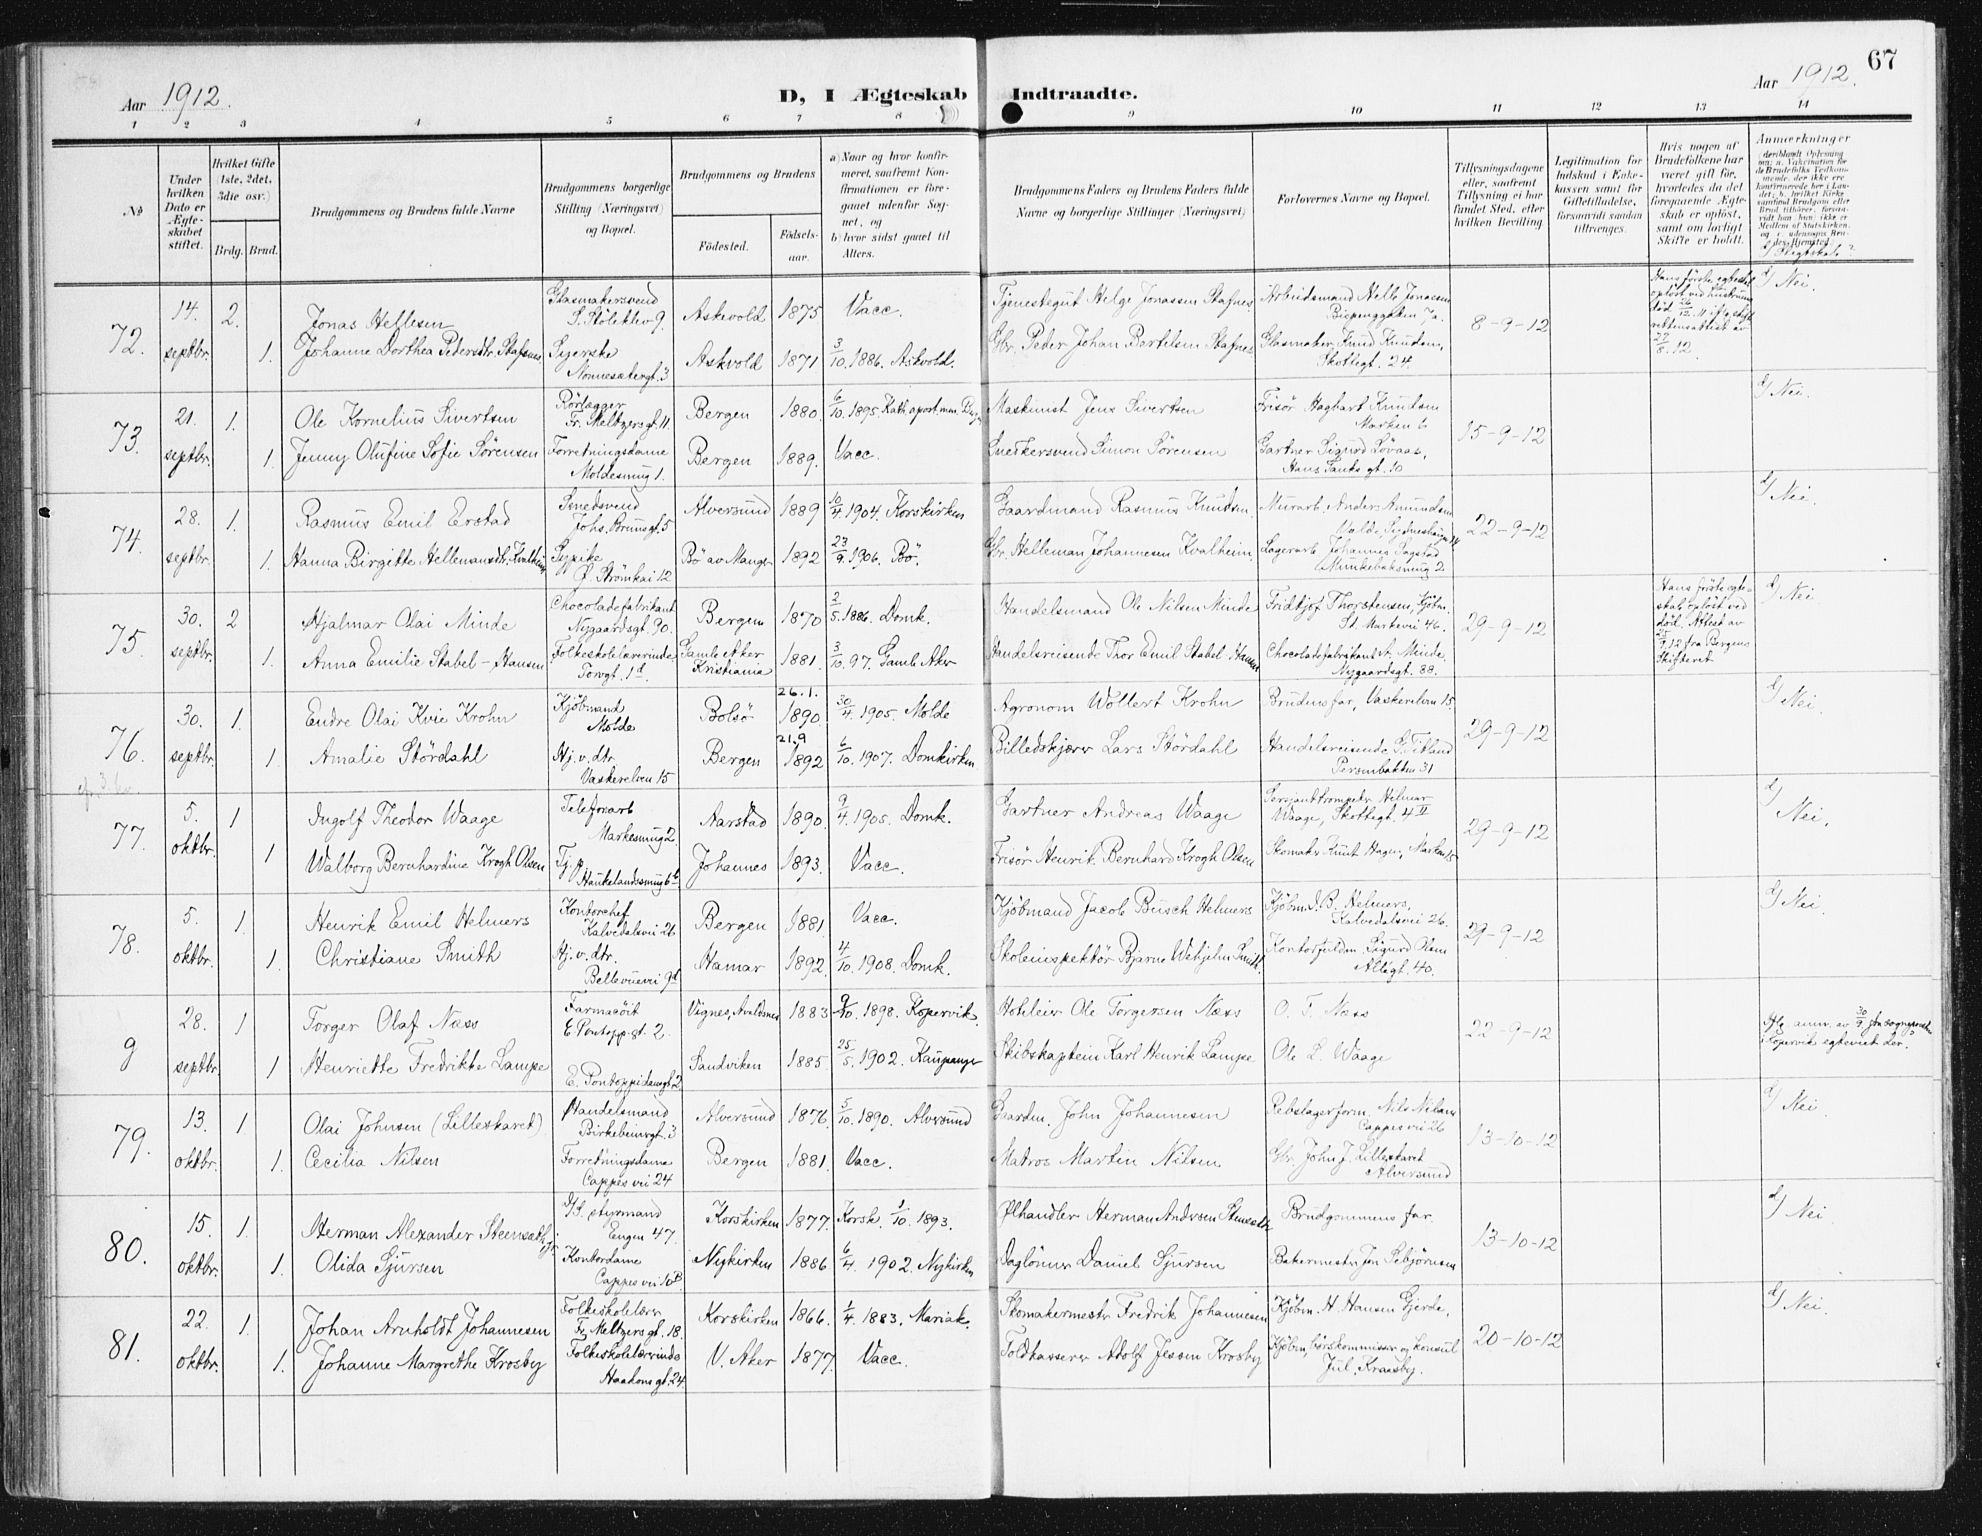 67
Aar 1912.
D, I Ægteskab Indtraadte.
Aar 1912.
1 2 3 4 5 6 7 8 9 10 11 12 13 14
No
Under hvilken Dato er Ægteskabet stiftet.
Hvilket Gifte (1ste, 2det, 3die osv.)
Brdg. Brud.
Brudgommens og Brudens fulde Navne
Brudgommens borgerlige Stilling (Næringsvei) og Bopæl.
Brudgommens og Brudens
Fødested.
Fødselsaar.
a) Naar og hvor konfirmeret, saafremt Konfirmationen er foregaaet udenfor Sognet, og
b) hvor sidst gaaet til Alters.
Brudgommens Faders og Brudens Faders fulde Navne og borgerlige Stillinger (Næringsvei)
Forlovernes Navne og Bopæl.
Tillysningsdagene eller, saafremt Tillysning ei har fundet Sted, efter hvilken Bevilling
Legitimation for Indskud i Enkekassen samt for Giftetilladelse, forsaavidt saadan tiltrænges.
Hvis nogen af Brudefolkene har været gift før, hvorledes da det foregaaende Ægteskab er opløst, samt om lovligt Skifte er holdt.
Anmerkninger
72. 14. septbr. 2. Jonas Hellesen Glasmakersvend S. Stølekley 9. Askevold 1875 Vacc. Tjenestegut Helge Jonassen Stafnes Arbeidsmand Helb. Jonassen 8-9-12 Nei.
1. Johanne Dorthea Pedersdtr. Stafsnes Syerske Nonnesætergt. 3 Askvold 1871 3/10 1886. Askvold. Gbr. Peder Johan Bertelsen Stafnes Glasmaker Knud Knudsen, Skottegt. 24.
73. 21. septbr. 1. Ole Kornelius Sivertsen Rørlægger Fr. Meltzersgt. 11. Bergen 1880 6/10. 1895. Maskinist Jens Sivertsen Frisør Hagbart Knudsen Marken 6 15-9-12 Nei.
1. Jenny Olufine Sofie Sørensen Forretningsdame Moldesmug 1. Bergen 1889. Vacc. Snedkersvend Simon Sørensen Gartner Sigurd Løvaas, Hans Tanks gt. 10
74. 28. septbr. 1. Rasmus Emil Erstad Smedsvend Johs. Brunsgt. 5 Alversund 1889 10/4 1904. Korskirken Gaardmand Rasmus Knudsen Murarb. Anders Amundsen 22-9-12 Nei.
1. Hanna Birgitte Hellemansdtr. Kvalheim Sypike D. Strømkai 12 Bø av Manger 1892 23/9. 1906. Bø. Gbr. Helleman Johannesen Kvalheim Lagerarb. Johannes Sagstad Munkebæksmug 2.
75. 30. septbr. 2 Hjalmar Olai Minde Chocoladefabrikant Nygaardsgt. 90. Bergen 1870 2/5. 1886. Domk. Handelsmand Ole Nilsen Minde Fridtjof Thorstensen, Kjøbm. St. Markevei 46. 29-9-12 Nei
1. Anna Emilie Stabel-Hansen Folkeskolelærerinde Torvgt. 1d. Gamle Aker Kristiania 1881. 3/10. 97. Gamle Aker Handelsreisende Thor Emil Stabel Hansen Chocoladefabrikant A. Minde, Nygaardsgt. 88.
76. 30. septbr. 1. Endre Olai Kvie Krohn Kjøbmand Molde Bolsø 26.1. 1890. 30/4. 1905. Molde Agronom Wollert Krohn Brudens far, Vaskerelven 15. 29-9-12 Nei.
1. Amalie Størdahl Hj. v. dtr. Vaskerelven 15 Bergen 21.9 1892 6/10. 1907. Domkirken Billedskjærer Lars Størdahl Handelsreisende G. Titland Persenbakken 31
77. 5. oktbr. 1 Ingolf Theodor Waage Telefonarb Markesmug 2. Aarstad 1890. 9/4. 1905. Domk. Gartner Andreas Waage Sersjanttrompeter Helmer Waage, Skottegt. 4 II 29-9-12 Nei.
1 Walborg Bernhardine Krogh Olsen Tj. p. Haukelandssmug 6b Johannes 1893. Vacc. Frisør Henrik Bernhard Krogh Olsen Skomaker Knut Hagen, Marken 15
78. 5. oktbr. 1. Henrik Emil Helmers Kontorchef Kalvedalsvei 26 Bergen 1881. Vacc. Kjøbmand Jacob Busch Helmers Kjøbm. J. B. Helmers, Kalvedalsvei 26. 29-9-12 Nei.
1. Christiane Smith Hj. v. dtr. Bellevuevei 9d Hamar 1892. 4/10. 1908. Domk. Skoleinspektør Bjarne Wehjelm Smith. Kontorfuldm. Sigurd Olsen Allegt. 40.
9 28. septbr. 1 Torger Olaf Næss Farmasøit E. Pontopp.gt. 2. Vignes, Avaldsnes 1883 9/10. 1898. Kopervik. Hotleier Ole Torgersen Næss O. T. Næss 22-9-12 Iflg. anm. av 30/9 fra sogneprsten i Kopervik egteviet der.
1 Henriette Fredrikke Lampe E. Pontoppidansgt. 2 Sandviken 1885. 25/5. 1902. Kaupanger Skibskaptein Karl Henrik Lampe Ole L. Waage
79. 13. oktbr. 1 Olai Johnsen (Lilleskaret) Handelsmand Birkebeinergt. 3 Alversund 1876. 5/10. 1890. Alversund Gaardm. John Johannesen Rebslagerform. Nils Nilsen Cappes vei 26 13-10-12 Nei.
1. Cecilia Nilsen Forretningsdame Cappes vei 24 Bergen 1881. Vacc. Matros Martin Nilsen Gbr. John J. Lilleskaret Alversund
80. 15. oktbr. 1. Herman Alexander Steensæth jr. D/S. styrmand Engen 47. Korskirken 1877. Korsk. 1/10. 1893. Ølhandler Herman Andersen Stensæth Brudgommens far. 13-10-12 Nei.
1. Olida Sjursen Kontordame Cappes vei 10B Nykirken 1886 6/4. 1902. Nykirken Dagløner Daniel Sjursen Bakermester Jon Sebjørnsen
81. 22. oktbr. 1. Johan Arnholdt Johannesen Folkeskolelærer Fr. Meltzersgt. 18. Korskirken 1866. 1/4. 1883. Mariak. Skomakermester Fredrik Johannesen Kjøbm. H. Hansen Gjerde, 20-10-12 Nei.
1. Johanne Margrethe Krosby Folkeskolelærerinde Haakonsgt. 24. V. Aker 1877. Vacc. Toldkasserer Adolf Jessen Krosby Kjøbm., børskommissær og konsul Jul. Kraasby.